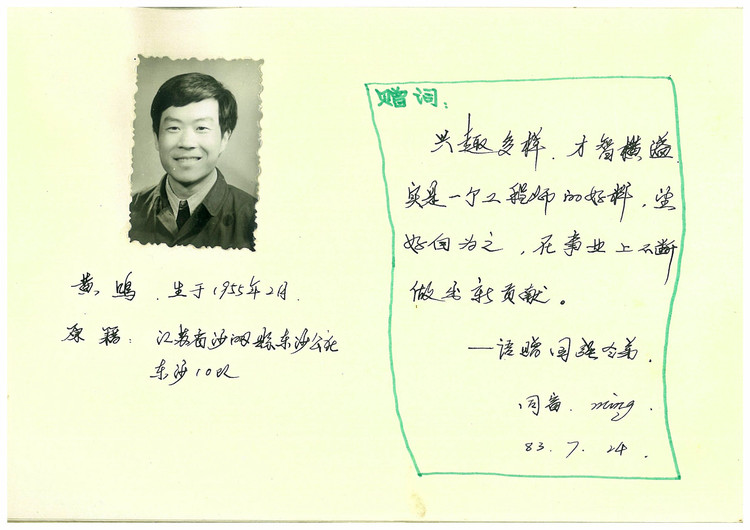 黄鸣．生于1955年2月．
原籍：江苏省沙洲县东沙公社
东沙10队
赠词：
兴趣多样，才智横溢．
实是一个工程师的好料，望
好自为之，在事业上不断
做出新贡献。
——语赠国
同窗．ming．
83．7．24．